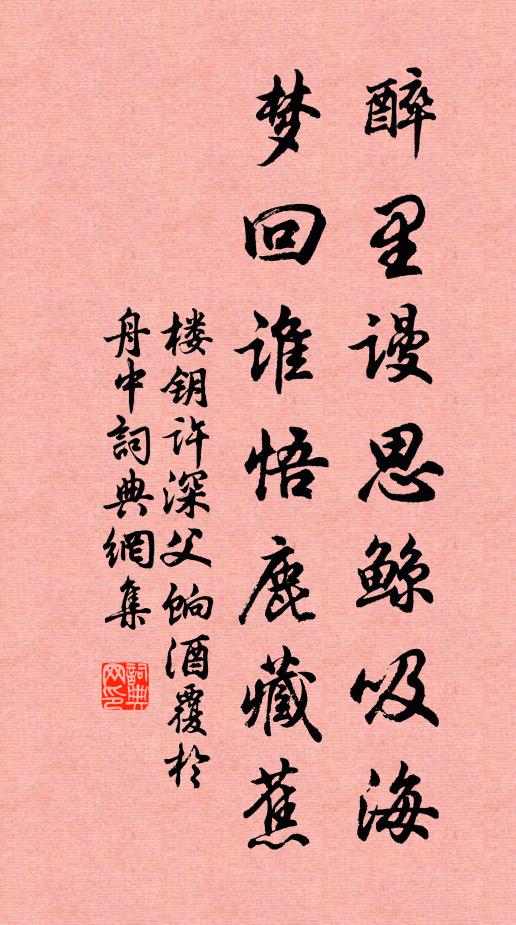 醉里谩思鲸吸海
梦回谁悟鹿藏蕉
楼钥许深父饷酒覆於
舟中詞典網集
詞典
网印